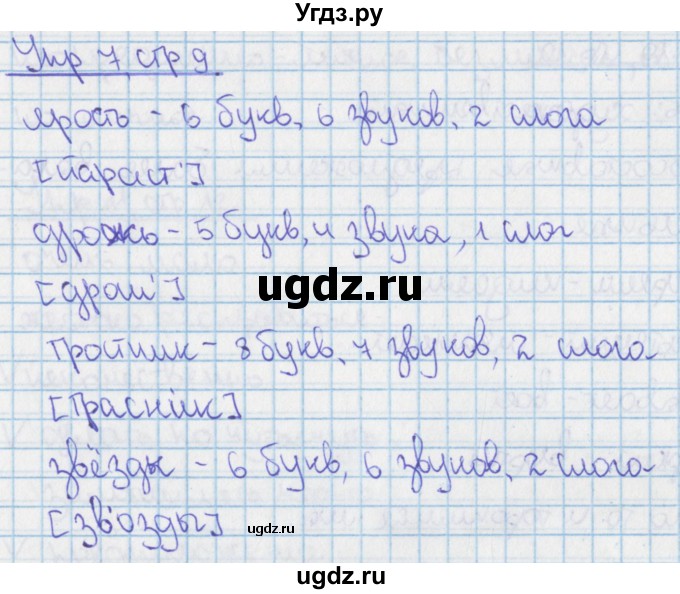 Угдз.ру
Упр 7 стр 9
ярость - 6 букв, 6 звуков, 2 слога
[йараст']
дрожь - 5 букв, 4 звука, 1 слог
[драш']
ugdz.ru
тростник - 8 букв, 7 звуков, 2 слога
[трасник]
звёзды - 6 букв, 6 звуков, 2 слога
[зв'озды]
ugdz.ru
ugdz.ru